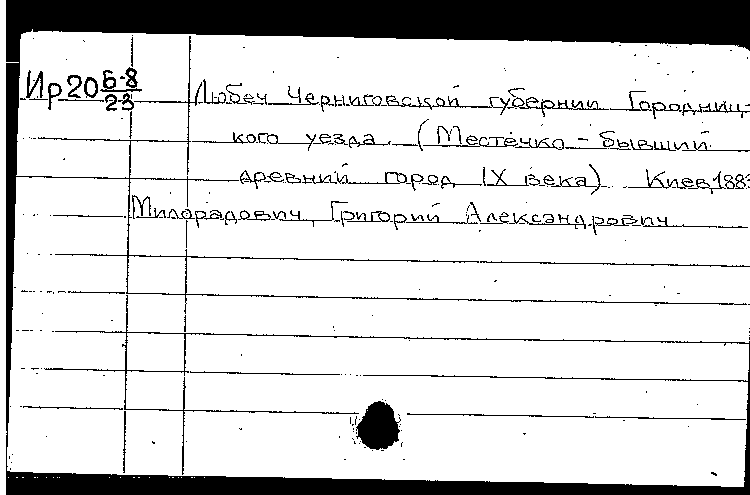 Ир20 Б-8/23 Любеч Черниговской губернии Городниц-
кого уезда. (Местечко - бывший
древний город IX века) Киев, 1883
Милорадович, Григорий Александрович